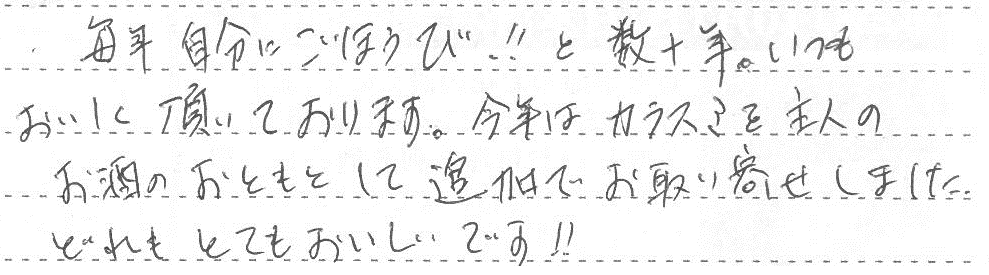 毎年自分にごほうび!!と数十年。いつも
おいしく頂いております。今年はカラスミを主人の
お酒のおともとして追加でお取り寄せしました。
どれもとてもおいしいです!!